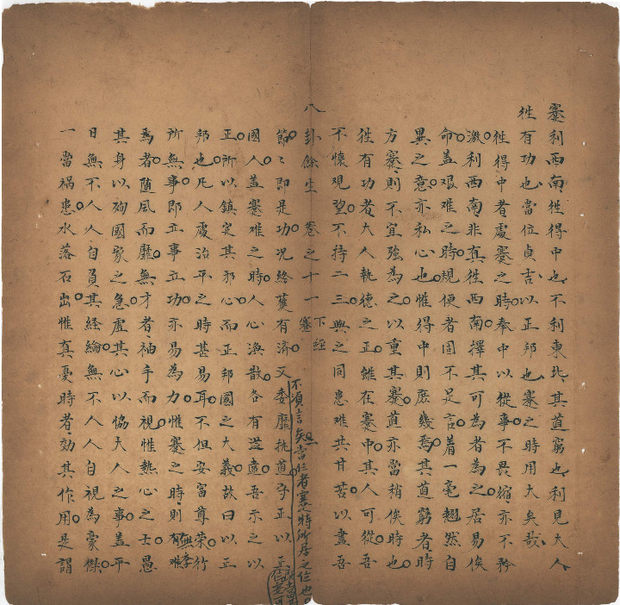 蹇利西南往得中也不利東北其道窮也利見大人
往有功也當位貞吉以正邦也蹇之時用大矣哉
往得中者處蹇之時奉中以從事不畏縮亦不矜
激利西南非真往西南擇其可為者為之居易俟
命蓋艱難之時規便者固不足言着一毫翹然自
異之意亦私心也惟得中則庶幾焉其道窮者時
方蹇則不宜強為之以重其蹇道亦當稍俟時也
往有功者大人執德之正雖在蹇中其人可從吾
不懷觀望不持二三與之同患難共甘苦以盡吾
八卦餘生 卷之十一 蹇 下經
節〻即是功况終獲有濟又委靡枉道守正以正
不須言矣當位者蹇時所居之位也
國人蓋蹇難之時人心渙散各有逆慮吾示之以
正所以鎮定其邪心而正邦國之大義故曰以正
邦也凡人處治平之時甚易耳不但安富尊榮行
所無事即立事立功亦易為力惟蹇之時則
焉者隨風而靡無才者袖手而視惟熱心之士愚
其身以殉國家之急虛其心以協大人之事蓋平
日無不人人自負其經綸無不人人自視為豪傑
一當禍患水落石出惟真憂時者効其作用是謂